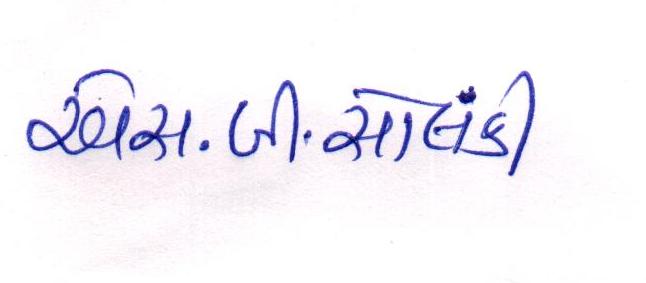 એસ. બી. સોલંકી